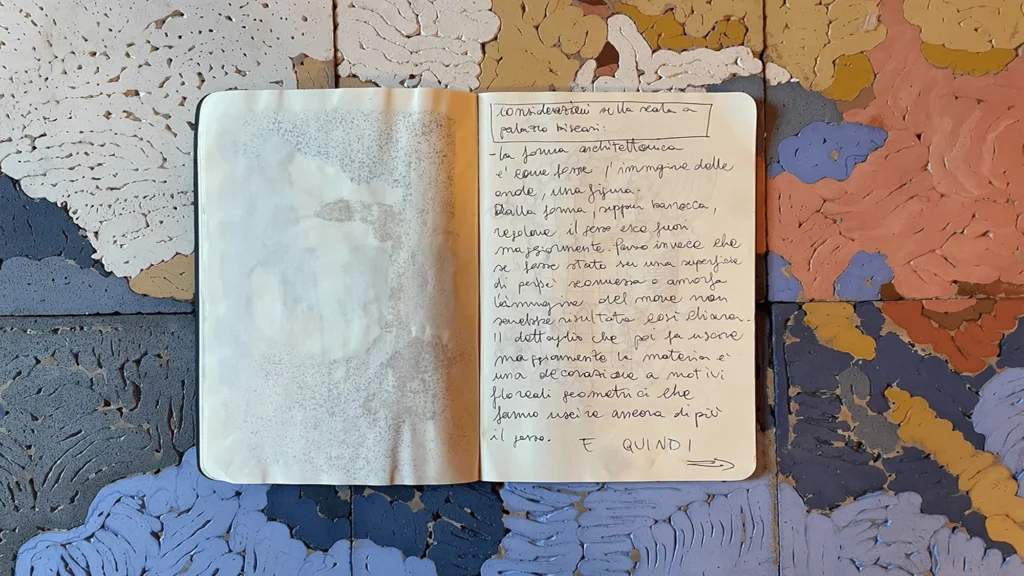 considerazioni sulla scala a
palazzo biscari:
- la forma architettonica
e' come fosse l'immagine delle
onde, una figura.
Dalla forma, seppur barocca,
regolare il gesso esce fuori
maggiormente. Penso invece che
se fosse stato su una superficie
di per sé sconnessa o amorfa
l'immagine del mare non
sarebbe risultata così chiara.
Il dettaglio che poi fa uscire
maggiormente la materia e'
una decorazione a motivi
floreali geometrici che
fanno uscire ancora di più
il gesso. E QUINDI